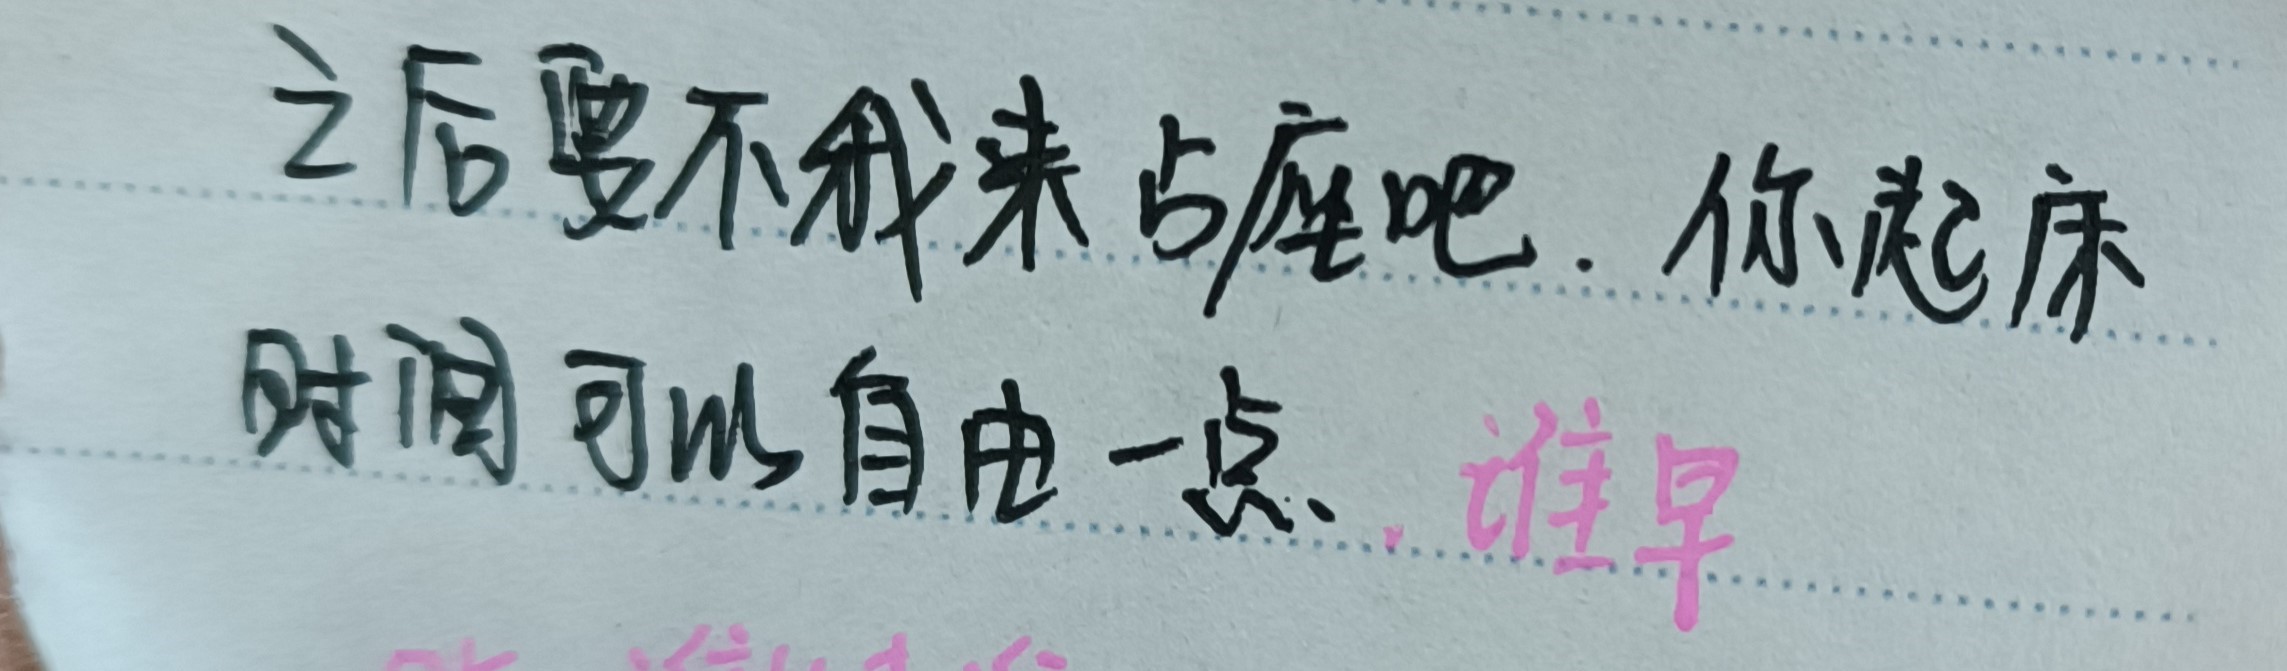 之后要不我来占座吧. 你起床
时间可以自由一点. 谁早